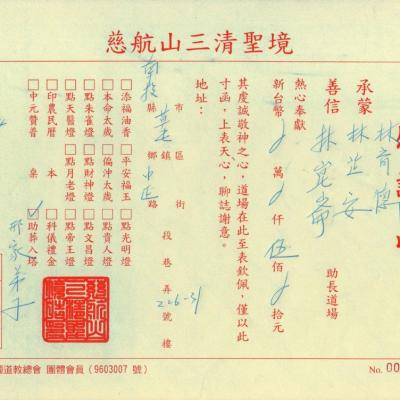 慈航山三清聖境
承蒙
善信
林崑崙
助長道場
熱心奉獻
新台幣 萬 仟 伍 佰 拾元
其虔誠敬神之心，道場在此至表欽佩，僅以此
寸函，上表天心，聊誌謝意。
地址：
市 區 街
縣 鎮 段 巷 弄 號 樓
鄉 路
226-31
□添福油香 □平安福王 □點光明燈
□本命太歲 □偏沖太歲 □點貴人燈
□點朱雀燈 □點財神燈 □點文昌燈
□點天醫燈 □點月老燈 □點帝王燈
□印農民曆 □本 □科儀禮金
□中元贊普 桌 助葬入塔
道教總會 團體會員（9603007 號）
No. 00